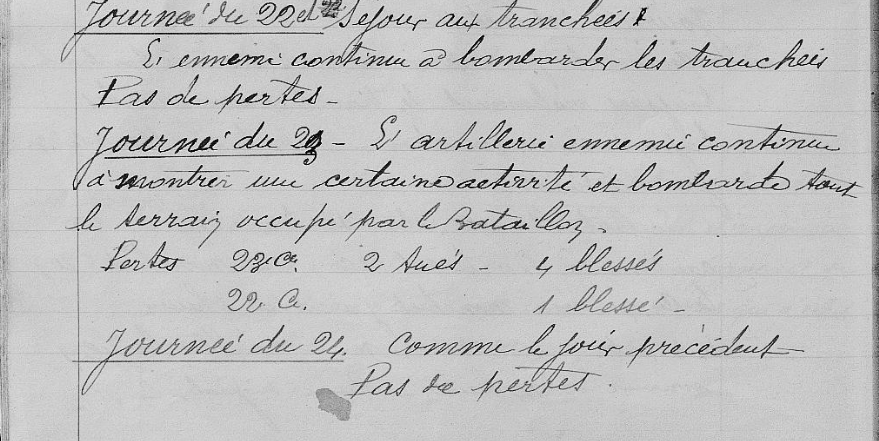 Journeé du 22 et 22 Sejour aux trancheés
L'ennemi continue à bombarder les trancheés
Pas de pertes -
Journeé du 23 - L'artillerie ennemie continue
à montrer une certaine activité et bombarde tout
le terrain occupé par le Bataillon.
Pertes 23e Cie. 2 tués - 4 blessés
22 Cie. 1 blessé -
Journeé du 24. Comme le jour précédent
Pas de pertes.